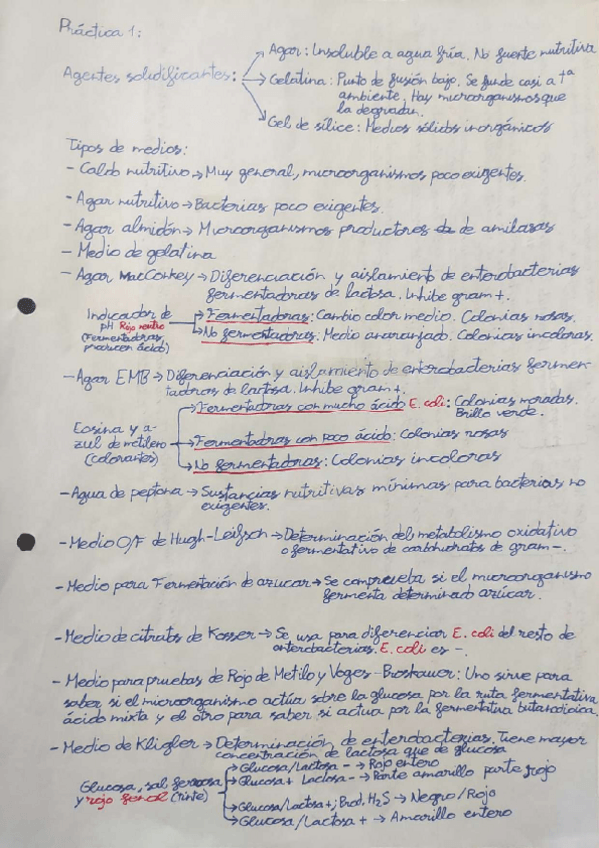 Práctica 1:
Agentes solidificantes:
Agar: Insoluble a agua fría. No fuente nutritiva
Gelatina: Punto de fusión bajo. Se funde casi a tª
ambiente. Hay microorganismos que
la degradan.
Gel de sílice: Medios sólidos inorgánicos
Tipos de medios:
- Caldo nutritivo → Muy general, microorganismos poco exigentes.
- Agar nutritivo → Bacterias poco exigentes.
- Agar almidón → Microorganismos productores de amilasas
- Medio de gelatina
- Agar MacConkey → Diferenciación y aislamiento de enterobacterias
fermentadoras de lactosa. Inhibe gram+.
Indicador de
pH Rojo neutro
(Fermentadoras
producen ácido)
→ Fermentadoras: Cambio color medio. Colonias rosas.
→ No fermentadoras: Medio anaranjado. Colonias incoloras.
- Agar EMB → Diferenciación y aislamiento de enterobacterias fermen-
tadoras de lactosa. Inhibe gram+.
Eosina y a-
zul de metileno
(colorantes)
→ Fermentadoras con mucho ácido E. coli: Colonias moradas.
Brillo verde.
→ Fermentadoras con poco ácido: Colonias rosas
→ No fermentadoras: Colonias incoloras
- Agua de peptona → Sustancias nutritivas mínimas para bacterias no
exigentes.
- Medio O/F de Hugh-Leifson → Determinación del metabolismo oxidativo
o fermentativo de carbohidratos de gram-.
- Medio para Fermentación de azucar → Se comprueba si el microorganismo
fermenta determinado azúcar.
- Medio de citratos de Kosser → Se usa para diferenciar E. coli del resto de
enterobacterias. E. coli es -.
- Medio para pruebas de Rojo de Metilo y Voges-Proskauer: Uno sirve para
saber si el microorganismo actúa sobre la glucosa por la ruta fermentativa
ácido mixta y el otro para saber si actua por la fermentativa butanodioica.
- Medio de Kligler → Determinación de enterobacterias. Tiene mayor
concentración de lactosa que de glucosa
Glucosa, sal ferrosa
y rojo fenol (tinte)
→ Glucosa/Lactosa - → Rojo entero
→ Glucosa+ Lactosa- → Parte amarillo parte rojo
→ Glucosa/Lactosa+; Prod. H₂S → Negro/Rojo
→ Glucosa/Lactosa + → Amarillo entero